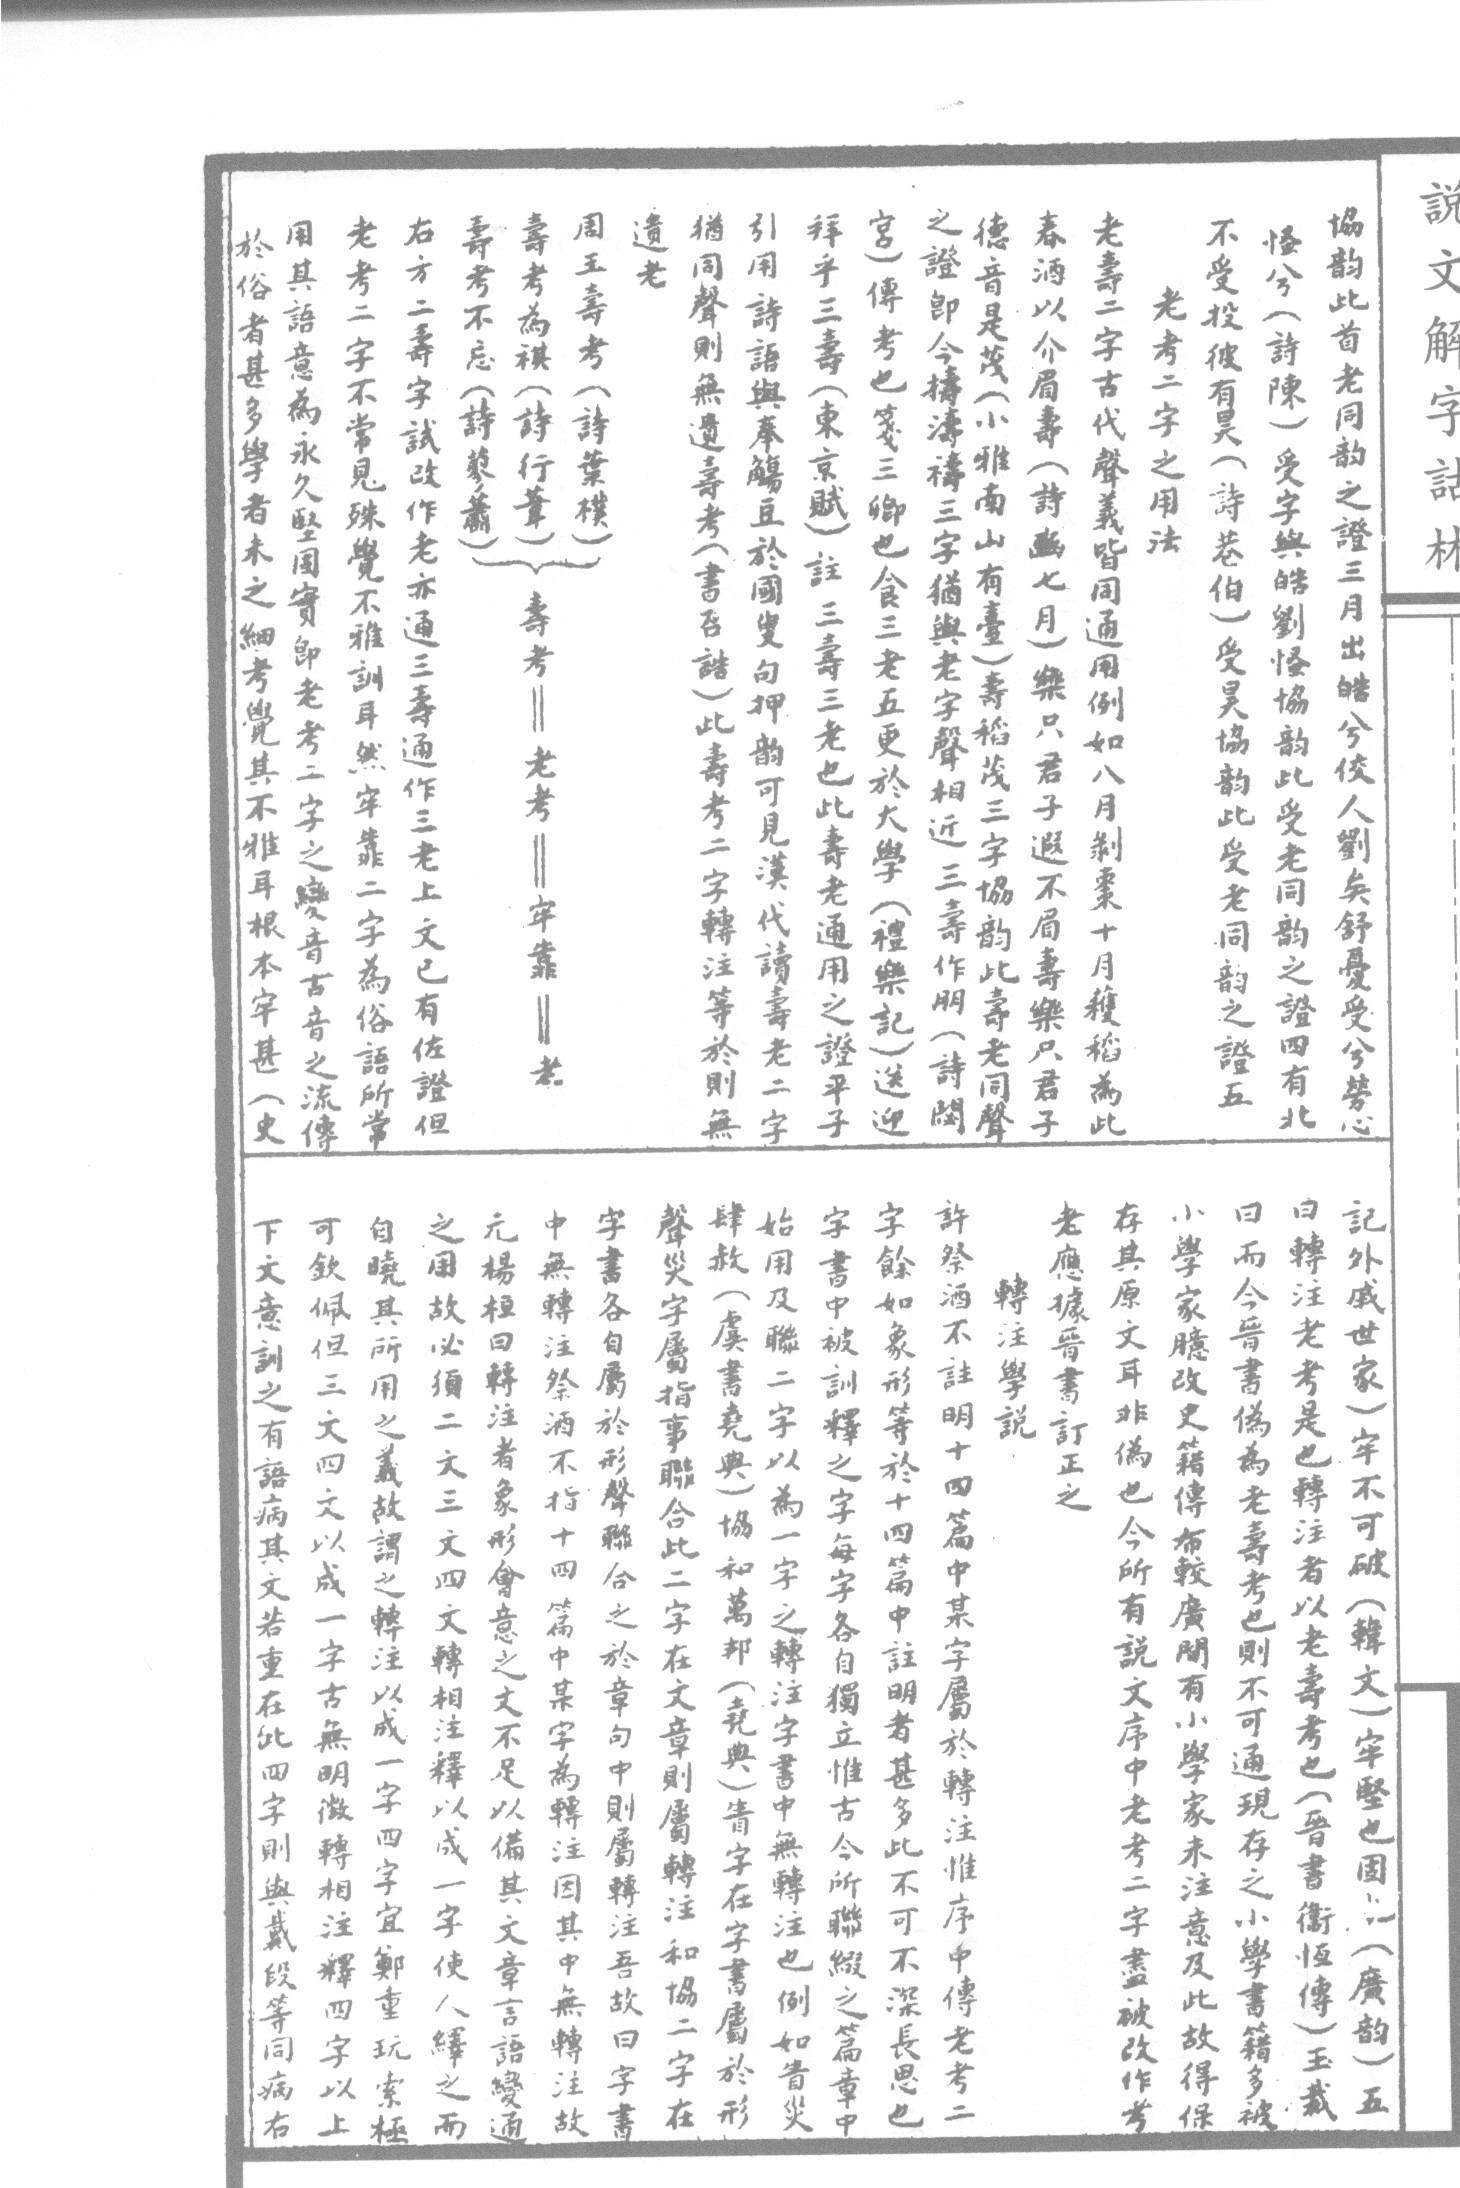 說文解字詁林
協韵此首老同韵之證三月出皓兮佼人劉矣舒憂受兮勞心
慅兮(詩陳)受字與皓劉慅協韵此受老同韵之證四有北
不受投彼有昊(詩巷伯)受昊協韵此受老同韵之證五
老考二字之用法
老壽二字古代聲義皆同通用例如八月剝棗十月穫稻為此
春酒以介眉壽(詩豳七月)樂只君子遐不眉壽樂只君子
德音是茂(小雅南山有臺)壽稻茂三字協韵此壽老同聲
之證卽今擣濤禱三字猶與老字聲相近三壽作朋(詩閟
宮)傳考也箋三卿也食三老五更於大學(禮樂記)送迎
拜乎三壽(東京賦)註三壽三老也此壽老通用之證平子
引用詩語與奉觴豆於國叟句押韵可見漢代讀壽老二字
猶同聲則無遺壽考(書召誥)此壽考二字轉注等於則無
遺老
周王壽考(詩棫樸)
壽考為祺(詩行葦)
壽考不忘(詩蓼蕭)
壽考＝老考＝牢靠＝老
右方二壽字試改作老亦通三壽通作三老上文已有佐證但
老考二字不常見殊覺不雅訓耳然牢靠二字為俗語所常
用其語意為永久堅固實卽老考二字之變音古音之流傳
於俗者甚多學者未之細考覺其不雅耳根本牢甚(史
記外戚世家)牢不可破(韓文)牢堅也固也(廣韵)五
曰轉注老考是也轉注者以老壽考也(晉書衞恆傳)玉裁
曰而今晉書偽為老壽考也則不可通現存之小學書籍多被
小學家臆改史籍傳布較廣間有小學家未注意及此故得保
存其原文耳非偽也今所有說文序中老考二字盡被改作考
老應據晉書訂正之
轉注學說
許祭酒不註明十四篇中某字屬於轉注惟序中傳老考二
字餘如象形等於十四篇中註明者甚多此不可不深長思也
字書中被訓釋之字每字各自獨立惟古今所聯綴之篇章中
始用及聯二字以為一字之轉注字書中無轉注也例如眚災
肆赦(虞書堯典)協和萬邦(堯典)眚字在字書屬於形
聲災字屬指事聯合此二字在文章則屬轉注和協二字在
字書各自屬於形聲聯合之於章句中則屬轉注吾故曰字書
中無轉注祭酒不指十四篇中某字為轉注因其中無轉注故
元楊桓曰轉注者象形會意之文不足以備其文章言語變通
之用故必須二文三文四文轉相注釋以成一字使人繹之而
自曉其所用之義故謂之轉注以成一字四字宜鄭重玩索極
可欽佩但三文四文以成一字古無明徵轉相注釋四字以上
下文意訓之有語病其文若重在此四字則與戴段等同病右